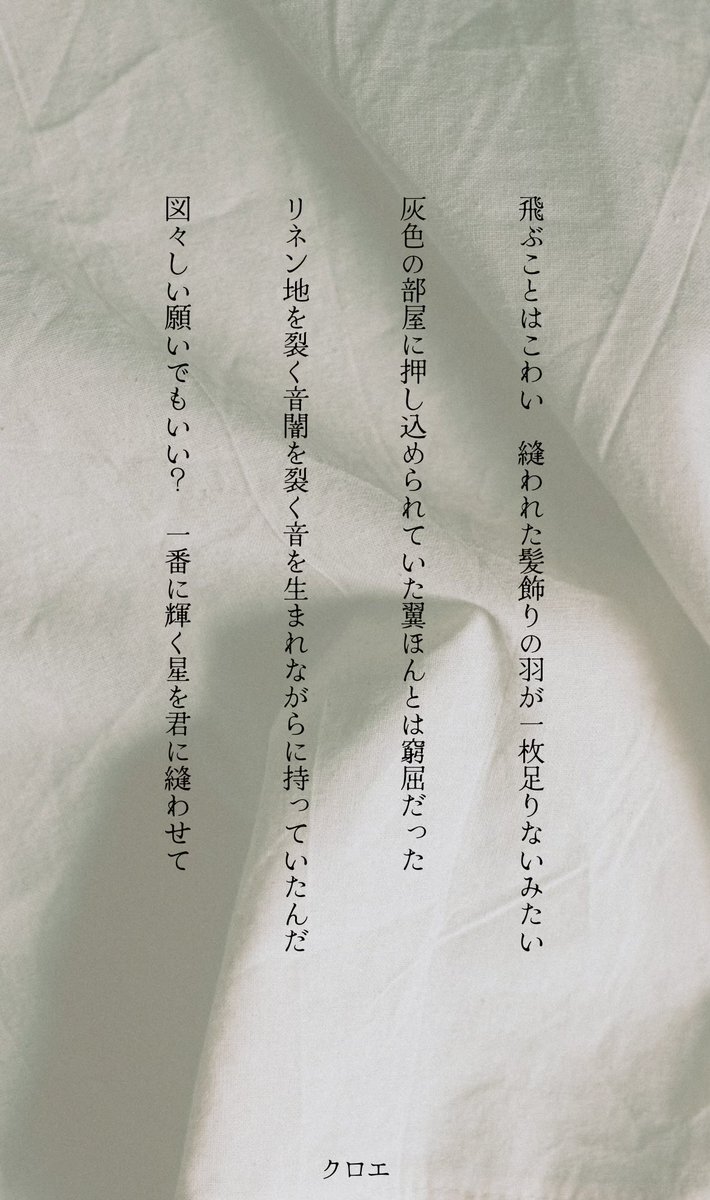 飛ぶことはこわい　縫われた髪飾りの羽が一枚足りないみたい
灰色の部屋に押し込められていた翼ほんとは窮屈だった
リネン地を裂く音闇を裂く音を生まれながらに持っていたんだ
図々しい願いでもいい?　一番に輝く星を君に縫わせて
クロエ